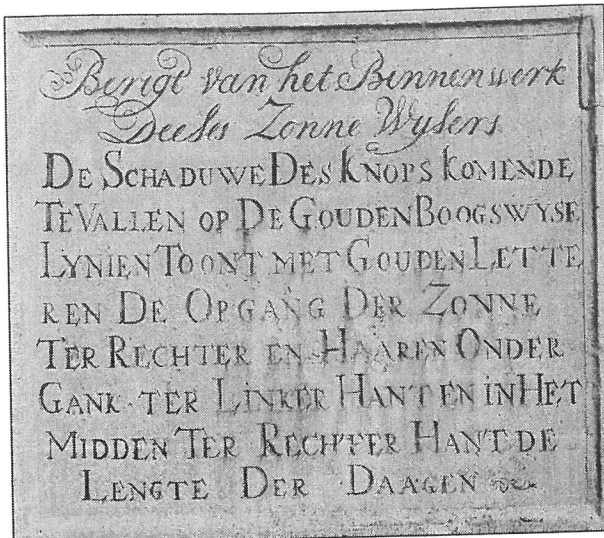 Berigt van het Binnenwerk
Deeses Zonne Wysers
DE SCHADUWE DES KNOPS KOMENDE
TE VALLEN OP DE GOUDEN BOOGSWYSE
LYNIEN TOONT MET GOUDEN LETTE
REN DE OPGANG DER ZONNE
TER RECHTER EN HAAREN ONDER
GANK TER LINKER HANT EN IN HET
MIDDEN TER RECHTER HANT DE
LENGTE DER DAAGEN